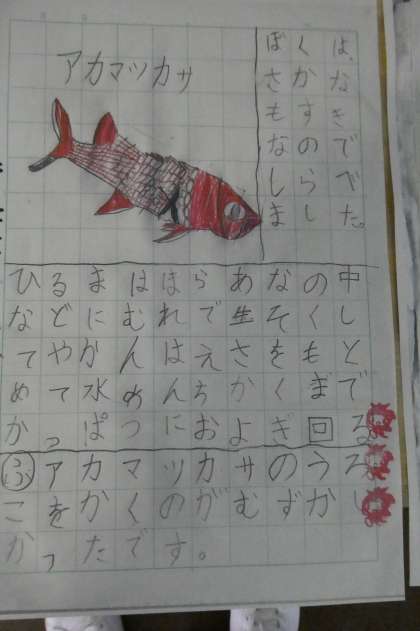 アカマツカサ
ぼくは、
さかな
もすき
なので
しらべ
ました。
ひるまはほらあなの中
などにむれで生そくし
てやかんはえさをもと
めて水めんちかくまで
かっぱつにおよぎ回る
アカマツカサのうろ
こをかくのがむずかし
かったです。